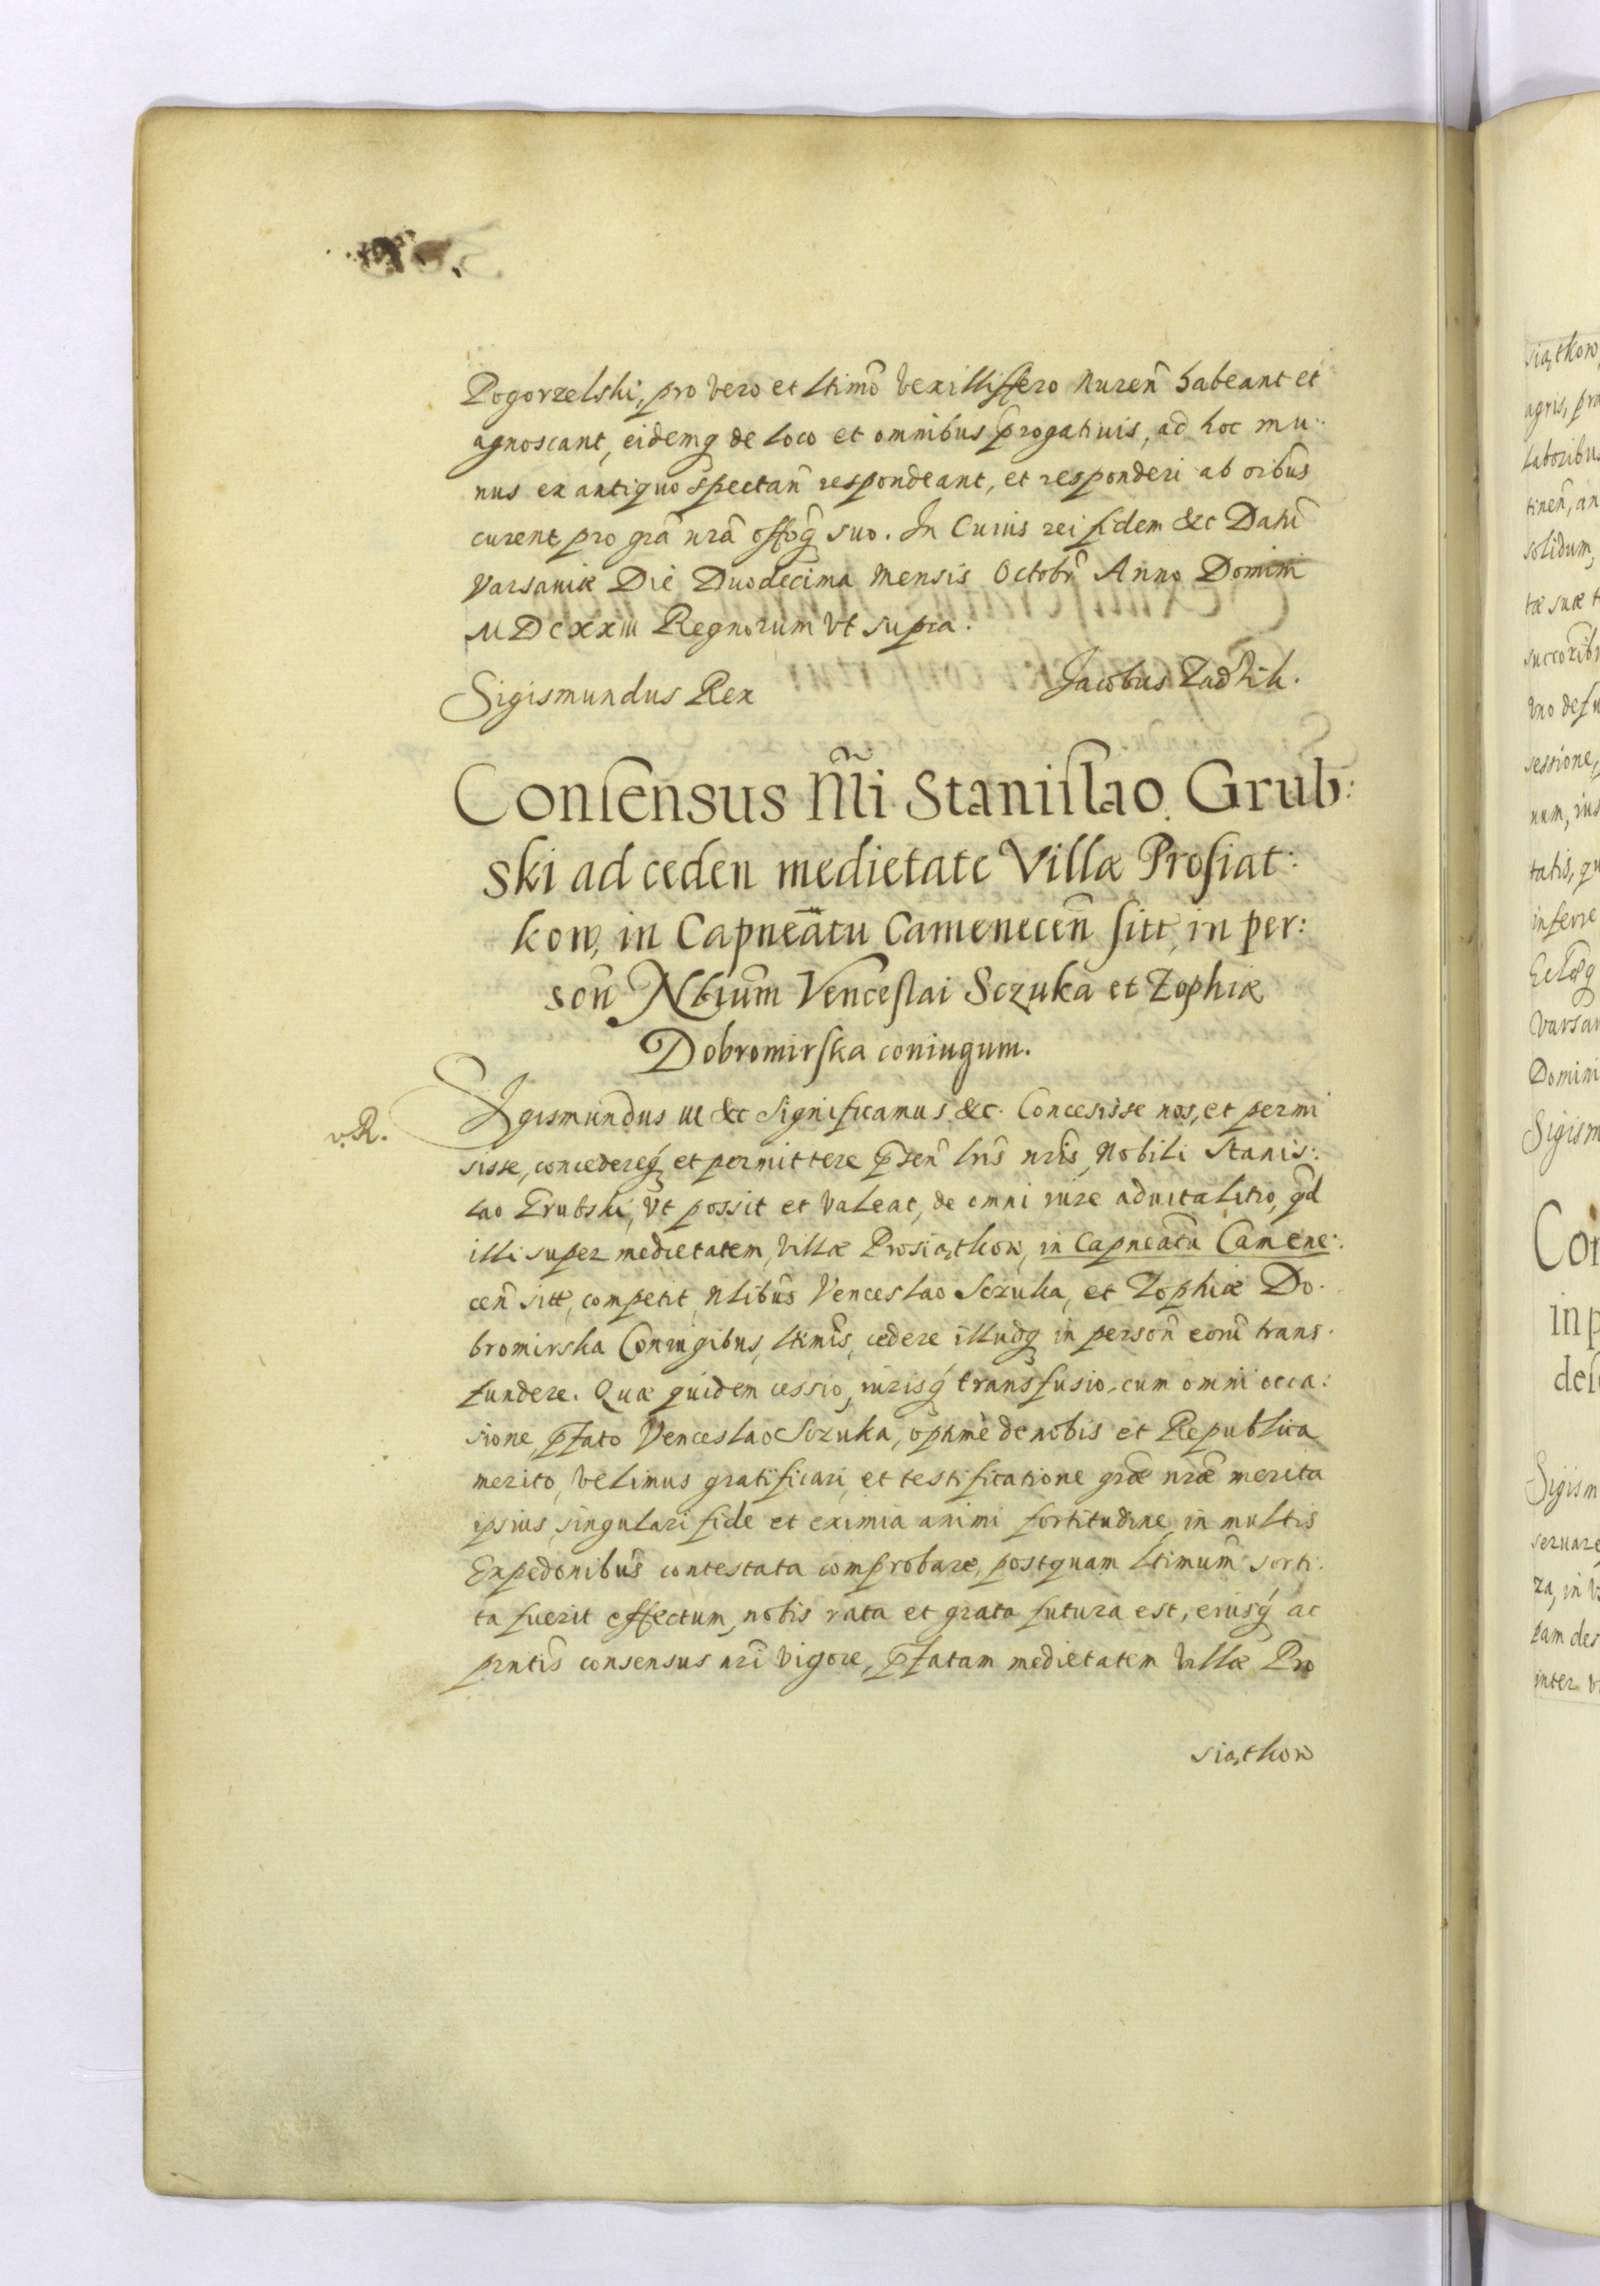 Pogorzelski, pro vero et ltimo vexillifero Nuren̄ habeant et
agnoscant, eidemq̃ de loco et omnibus p̃rogatiuis, ad hoc mu:
nus ex antiquo spectan̄ respondeant, et responderi ab oībus
curent pro grā nrā offōq̃ suo. In Cuius rei fidem &c Datū
Varsaviæ Die Duodecima Mensis Octobr̄ Anno Domini
MDCXXIII Regnorum Vt supra.
Sigismundus Rex
Jacobus Zadzik.
Consensus N̄li Stanislao Grub:
ski ad ceden medietatē Villæ Prosiat:
kow, in Capneātu Camenecen̄ sitt, in per:
son̄ Nbium̄ Venceslai Sczuka et Zophiæ
Dobromirska coniugum.
v. R.
Sigismundus III &c Significamus &c. Concesisse nos, et permi
sisse, concedereq̃ et permittere p̃sen̄ lrīs nrīs, Nobili Stanis:
lao Grubski, Vt possit et Valeat, de omni iure aduitalitio, qd̄
illi super medietatem, Villæ Prosiątkow, in Capneatu Camene:
cen̄ sitt, competit, Nlibūs Venceslao Sczuka, et Zophiæ Do:
bromirska Coniugibus, ltimīs, cedere illudq̃ in person̄ eorū trans:
fundere. Quæ quidem cessio, iurisq̃ transfusio, cum omni occa:
sione, p̃fato Venceslao Sczuka, optimè de nobis et Republica
merito, velimus gratificari, et testificatione grāe nrāe merita
ipsius, singulari fide et eximia animi fortitudine, in multis
Expedōnibūs contestata comprobare, postquam ltimum̄ sorti:
ta fuerit effectum, nobis rata et grata futura est, eiusq̃ ac
pr̄ntīs consensus nrī vigore, p̃fatam medietatem Villæ Pro
siątkow